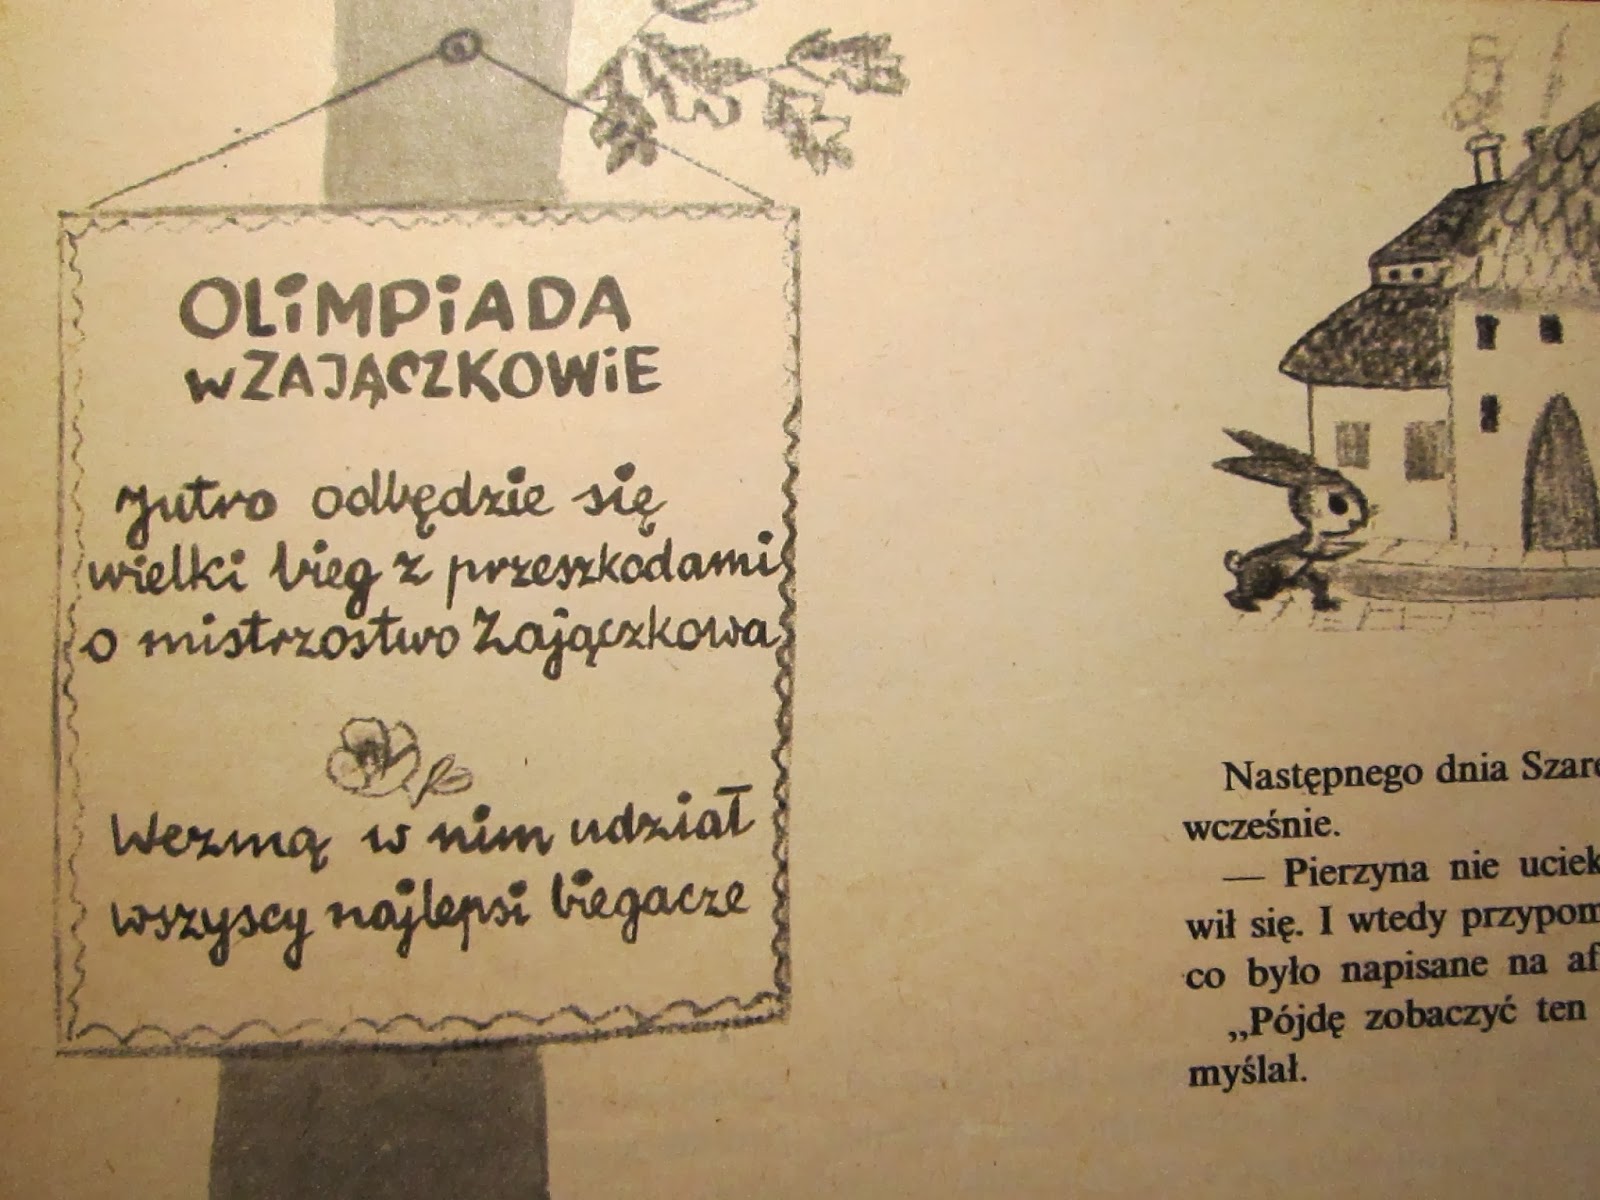 OLiMPiADA
w ZAJĄCZKOWiE
Jutro odbędzie się
wielki bieg z przeszkodami
o mistrzostwo Zajączkowa
Wezmą w nim udział
wszyscy najlepsi biegacze
Następnego dnia Szare
wcześnie.
— Pierzyna nie uciek
wił się. I wtedy przypom
co było napisane na af
„Pójdę zobaczyć ten
myślał.